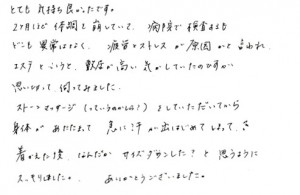 とても気持ち良かったです。
2ヶ月ほど体調を崩していて、病院で検査しても
どこも異常はなく、疲労とストレスが原因かと言われ、
エステというと、敷居が高い気がしていたのですが
思いきって、伺ってみました。
ストーンマッサージ(っていうのかしら?)をしていただいてから
身体があたたまって急に汗が出はじめてしまって、
着がえた後なんだかサイズダウンした?と思うように
スッキリしました。ありがとうございました。